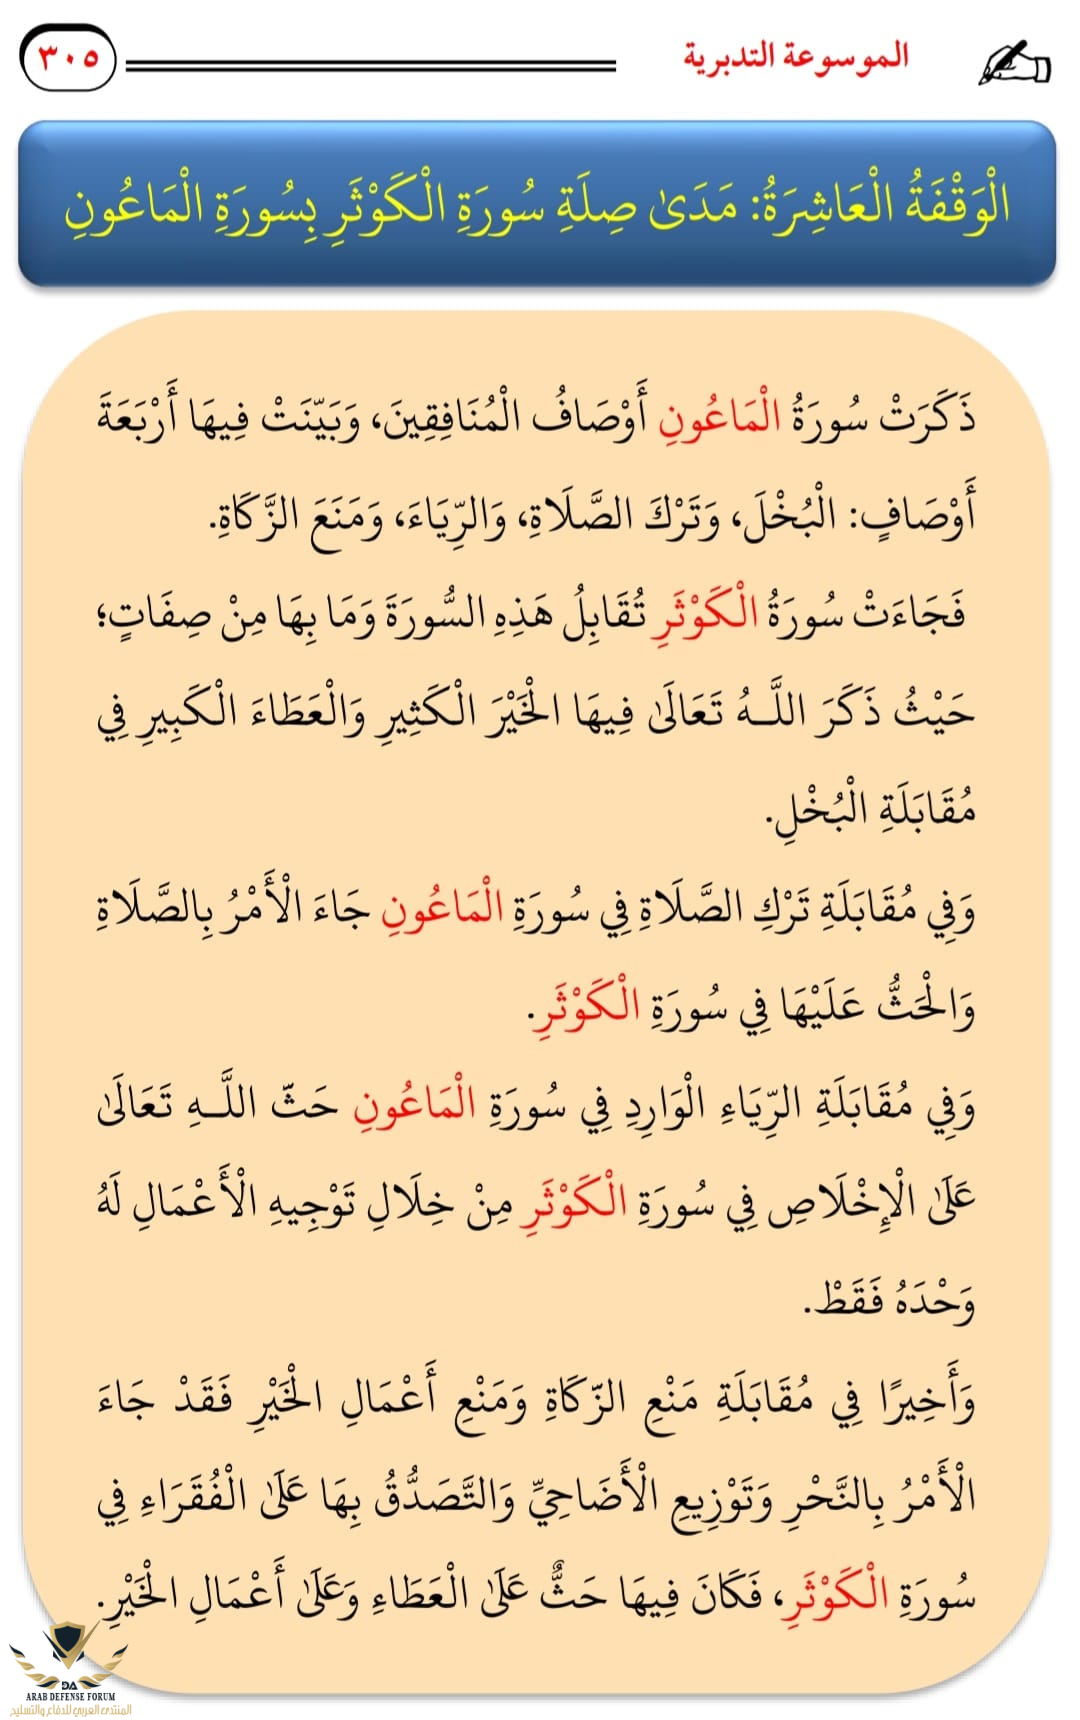 الموسوعة التدبرية
٣٠٥
الْوَقْفَةُ الْعَاشِرَةُ: مَدَىٰ صِلَةِ سُورَةِ الْكَوْثَرِ بِسُورَةِ الْمَاعُونِ
ذَكَرَتْ سُورَةُ الْمَاعُونِ أَوْصَافُ الْمُنَافِقِينَ، وَبَيّنَتْ فِيهَا أَرْبَعَةَ
أَوْصَافٍ: الْبُخْلَ، وَتَرْكَ الصَّلَاةِ، وَالرِّيَاءَ، وَمَنَعَ الزَّكَاةِ.
فَجَاءَتْ سُورَةُ الْكَوْثَرِ تُقَابِلُ هَذِهِ السُّورَةَ وَمَا بِهَا مِنْ صِفَاتٍ؛
حَيْثُ ذَكَرَ اللَّـهُ تَعَالَىٰ فِيهَا الْخَيْرَ الْكَثِيرِ وَالْعَطَاءَ الْكَبِيرِ فِي
مُقَابَلَةِ الْبُخْلِ.
وَفِي مُقَابَلَةِ تَرْكِ الصَّلَاةِ فِي سُورَةِ الْمَاعُونِ جَاءَ الْأَمْرُ بِالصَّلَاةِ
وَالْحَثُّ عَلَيْهَا فِي سُورَةِ الْكَوْثَرِ.
وَفِي مُقَابَلَةِ الرِّيَاءِ الْوَارِدِ فِي سُورَةِ الْمَاعُونِ حَثّ اللَّـهِ تَعَالَىٰ
عَلَىٰ الْإِخْلَاصِ فِي سُورَةِ الْكَوْثَرِ مِنْ خِلَالِ تَوْجِيهِ الْأَعْمَالِ لَهُ
وَحْدَهُ فَقَطْ.
وَأَخِيرًا فِي مُقَابَلَةِ مَنْعِ الزّكَاةِ وَمَنْعِ أَعْمَالِ الْخَيْرِ فَقَدْ جَاءَ
الْأَمْرُ بِالنَّحْرِ وَتَوْزِيعِ الْأَضَاحِيِّ وَالتَّصَدُّقُ بِهَا عَلَىٰ الْفُقَرَاءِ فِي
سُورَةِ الْكَوْثَرِ، فَكَانَ فِيهَا حَثٌّ عَلَىٰ الْعَطَاءِ وَعَلَىٰ أَعْمَالِ الْخَيْرِ.
DA
ARAB DEFENSE FORUM
المنتدى العربي للدفاع والتسليح